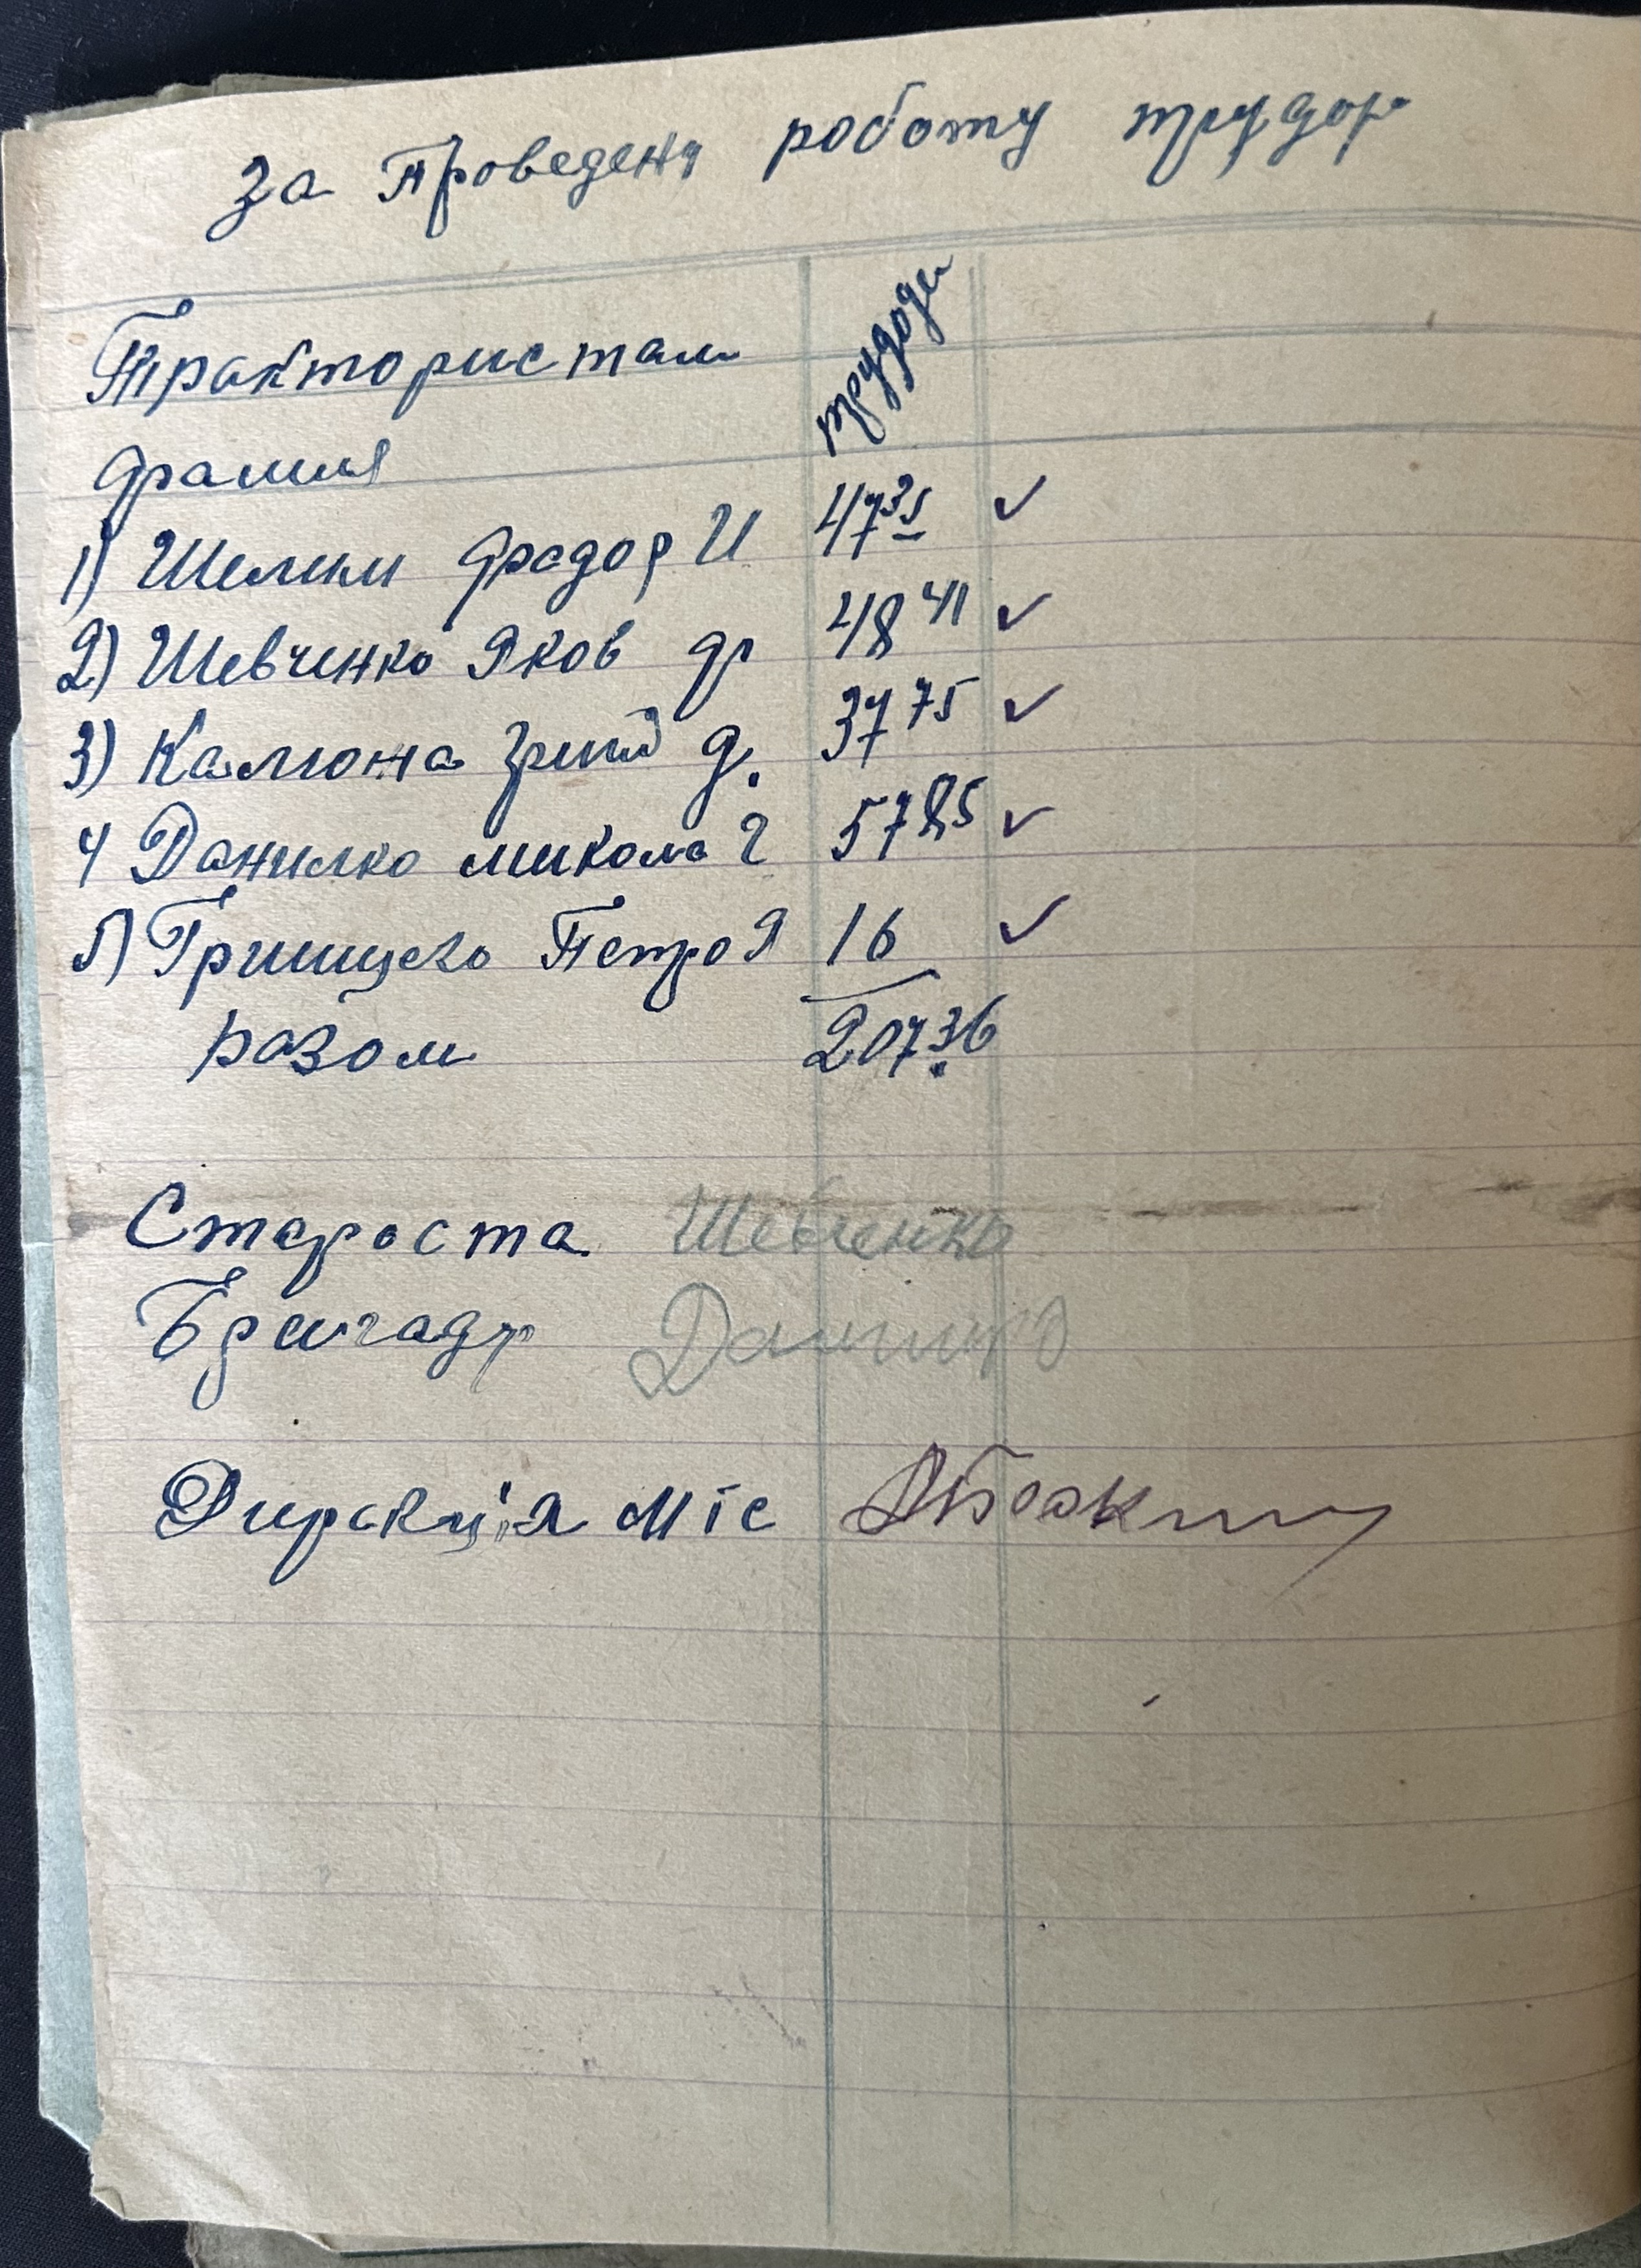 за Проведену роботу трудод
Трактористам трудоде
фамия
1) Шемим Федор И 47 35 ✓
2) Шевченко Яков ф 48 41 ✓
3) Калюжа д. 37 75 ✓
4 Данилко микола г 57 85 ✓
5) Грищеко Петро Я 16 ✓
разом 207.36
Староста Шевченко
Бригадр Данилко
Дирекція міс